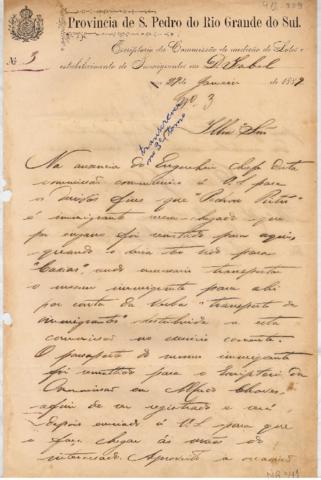 Provincia de S. Pedro do Rio Grande do Sul.
Escriptorio da Commissão de medição de Lotes e
estabelecimento de Immigrantes em D. Isabel
Nº 3
de Janeiro de 1889
Nº 3
Illmo Snr
Na ausencia do Engenheiro Chefe desta
commissão communico a V.S. para
os fins que Pedro
é immigrante recem-chegado que
por engano foi remettido para aqui
quando devia ter ido para
"Caxias", onde
o mesmo immigrante para ahi
por conta da verba "transporte de
immigrantes" distribuida a esta
commissão no exercicio corrente.
O passaporte do mesmo immigrante
foi remettido para o Escriptorio da
Commissão em Alfredo Chaves,
afim de ser registrado e será
depois enviado a V.S. para que
o faça chegar ás mãos do
interessado. Aproveito a occasião